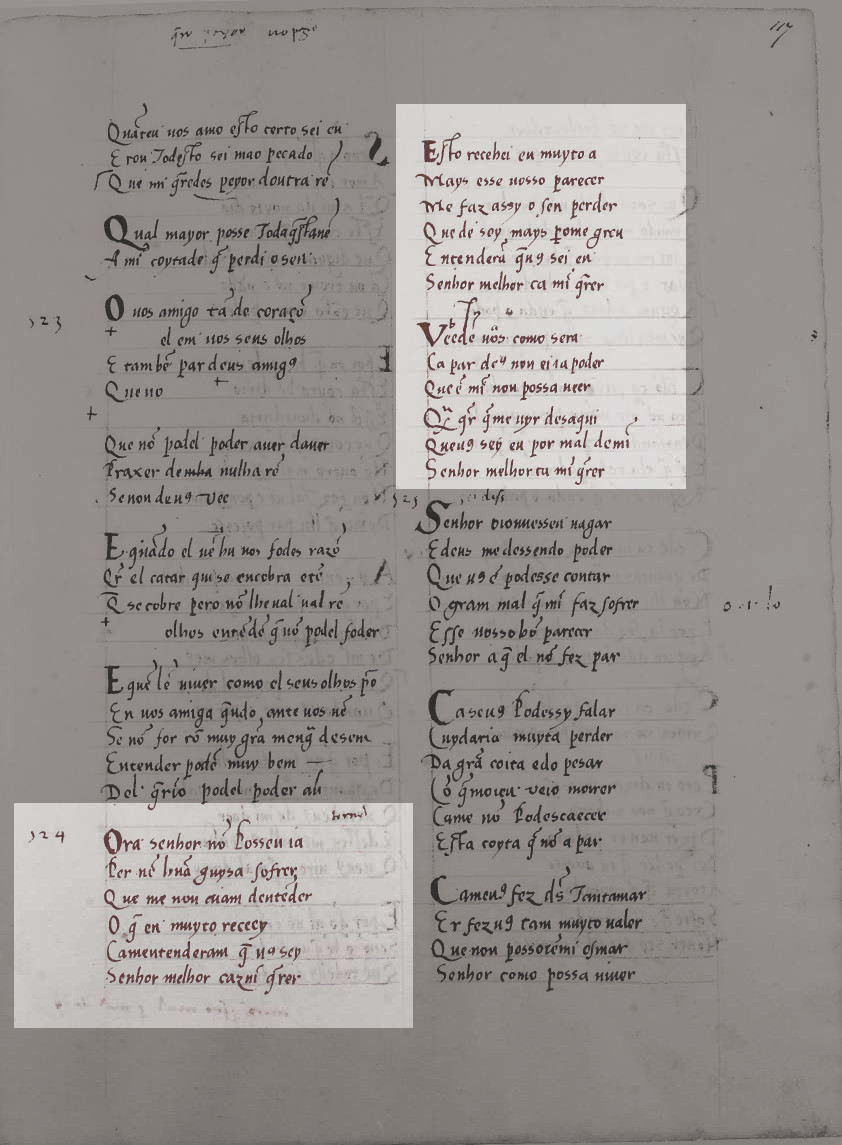 117
Quãteu uos amo esto certo sei eu
E rou Todesto sei mao pecado
Que mi q̃redes peyor doutra rẽ
Qual mayor posse
A mĩ coytade q̃ perdi o sen
123
O uos amigo tã de coraçõ
el em uos seus olhos
E tambẽ par deus amig9
Que no
Que nõ podel poder auer dauer
Praxer de nulha rẽ
Se non de u9 vee
E quãdo el uẽ hu uos sodes razõ
Qr̃ el catar que se encobra etẽ
Q̃ se cobre pero nõ lhe ual ual rẽ
olhos entẽdẽ q̃ nõ podel poder
E que lẽ uiuer como el seus olhos põ
En uos amiga q̃udo ante uos uẽ
Se nõ for cõ muy grã mengũ de sem
Entender podẽ muy bem
Del q̃ nõ podel poder al
124
tornel
Ora senhor nõ Posseu ia
Per nẽ hũa guysa sofrer
Que me non eiam dentẽder
O q̃ eu muyto recey
Camentenderam q̃ u9 sey
Senhor melhor ca mi q̃rer
Esto recebei eu muyto a
Mays esse uosso parecer
Me faz assy o sen perder
Que de soy mays pome greu
Entenderã q̃ u9 sei eu
Senhor melhor ca mĩ q̃rer
Veedẽ uos como sera
Ca par de9 non ei ia poder
Que ẽ mĩ non possa ueer
q̃r q̃ me uyr desaqui
Que u9 sey eu por mal de mĩ
Senhor melhor ca mĩ q̃rer
125
Senhor oionuessen uagar
E deus me dessendo poder
Que u9 ẽ podesse contar
O gram mal q̃ mĩ faz sofrer
Esse uosso bõ parecer
Senhor a q̃ el nõ fez par
Ca se u9 Podessy falar
Cuydaria muyta perder
Da grã coita edo pesar
Cõ q̃ moieu veio morrer
Ca me nõ Podescaecer
Esta coyta q̃ nõ a par
Ca me u9 fez ds̃ Tantamar
Er fez u9 tam muyto ualer
Que non possoremi osmar
Senhor como possa uiuer